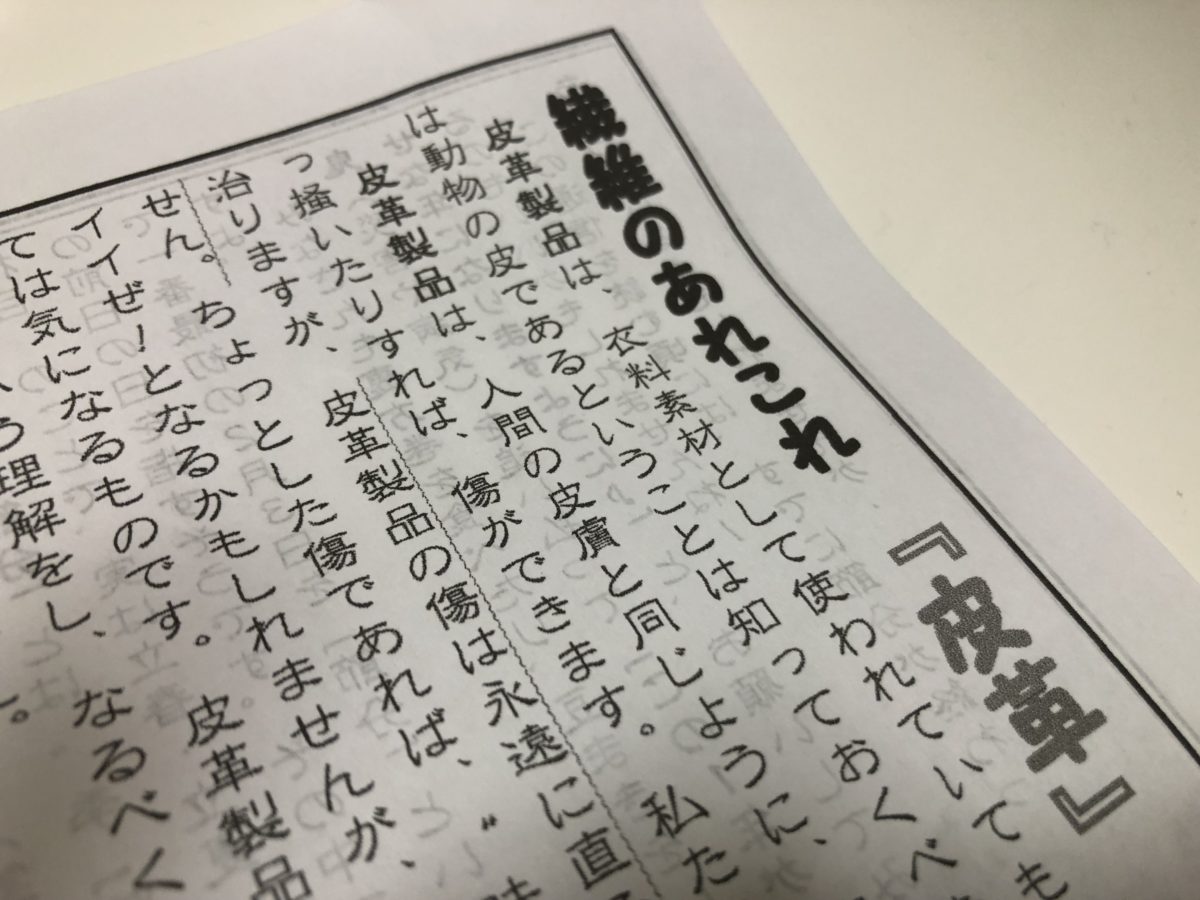 繊維のあれこれ 『皮革』
皮革製品は、衣料素材として使われていても
は動物の皮であるということは知っておくべ
皮革製品は、人間の皮膚と同じように、
っ掻いたりすれば、傷ができます。私た
治りますが、皮革製品の傷は永遠に直
せん。ちょっとした傷であれば、〝
イイぜ！となるかもしれませんが、
ては気になるものです。皮革製品
う理解をし、なるべく